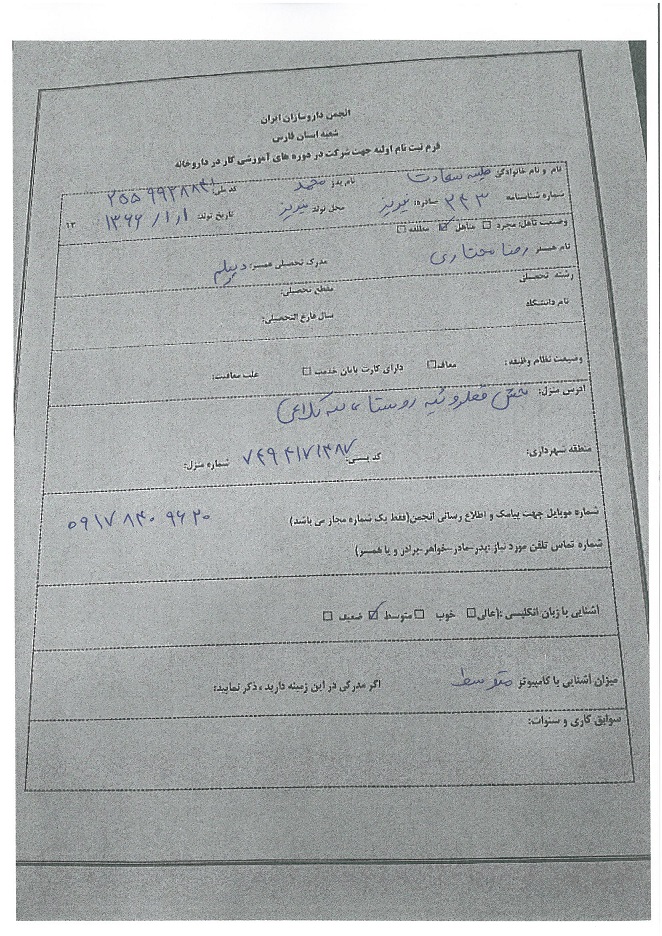 انجمن داروسازان ایران
شعبه استان فارس
فرم ثبت نام اولیه جهت شرکت در دوره های آموزشی کار در داروخانه
نام و نام خانوادگی: سعادت نام پدر: محمد کد ملی:
شماره شناسنامه ۲۴۳ صادره: نیریز محل تولد نیریز تاریخ تولد: ۱۳۶۶/۱/۱ ۱۳
وضعیت تاهل: مجرد □ متاهل ☑ مطلقه □
نام همسر رضا مختاری مدرک تحصیلی همسر: دیپلم
رشته تحصیلی مقطع تحصیلی:
نام دانشگاه سال فارغ التحصیلی:
وضیعت نظام وظیفه: معاف □ دارای کارت پایان خدمت □ علت معافیت:
آدرس منزل: بخش قطروئیه روستای
منطقه شهرداری: کد پستی: شماره منزل:
شماره موبایل جهت پیامک و اطلاع رسانی انجمن(فقط یک شماره مجاز می باشد) ۰۹۱۷ ۸۴۰ ۹۶۲۰
شماره تماس تلفن مورد نیاز :پدر-مادر-خواهر-برادر و یا همسر)
آشنایی با زبان انگلیسی :(عالی □ خوب □ متوسط ☑ ضعیف □
میزان آشنایی با کامپیوتر متوسط اگر مدرکی در این زمینه دارید ، ذکر نمایید:
سوابق کاری و سنوات: